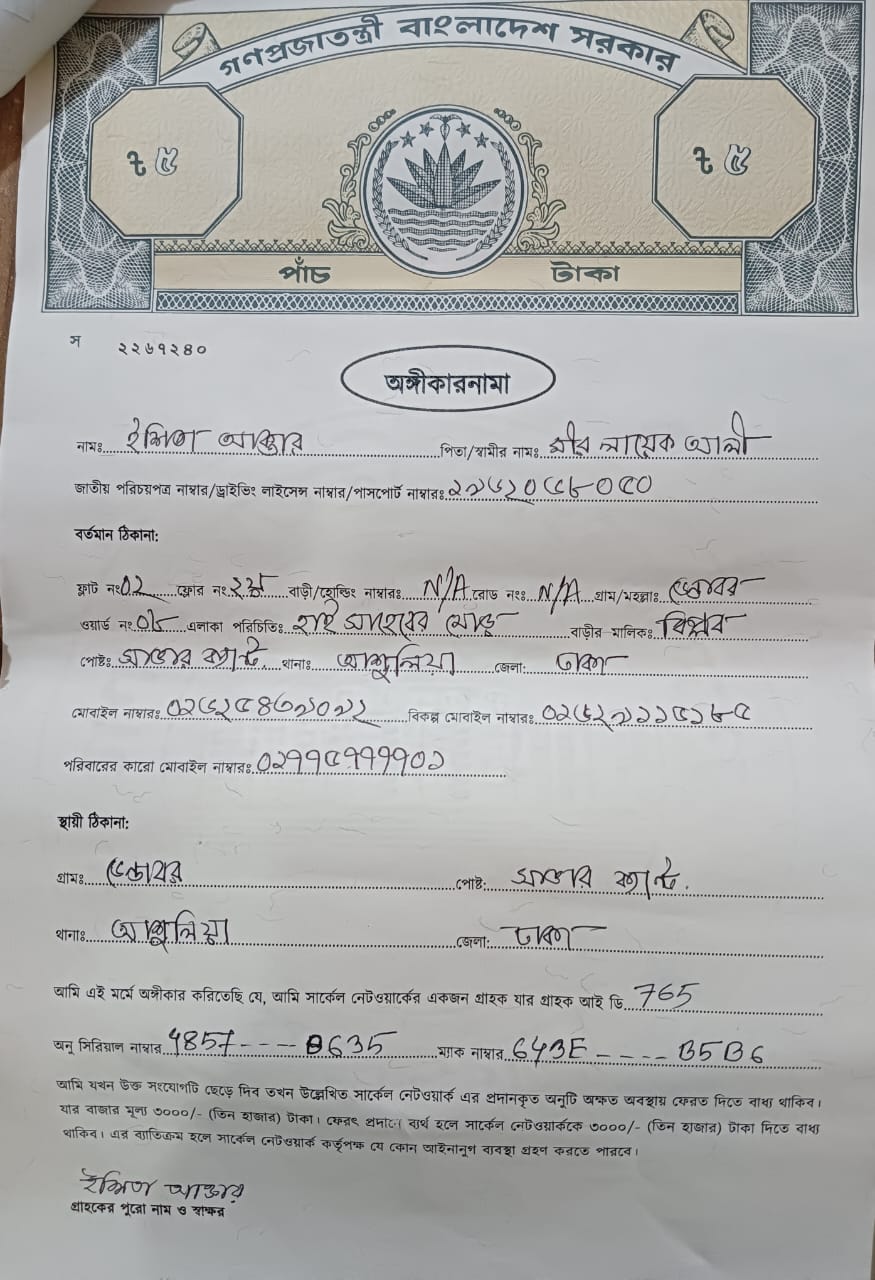 গণপ্রজাতন্ত্রী বাংলাদেশ সরকার
৳ ৫ ৳ ৫
পাঁচ টাকা
স ২২৬৭২৪০
অঙ্গীকারনামা
নামঃ ইশিতা আক্তার পিতা/স্বামীর নামঃ মীর লায়েক আলী
জাতীয় পরিচয়পত্র নাম্বার/ড্রাইভিং লাইসেন্স নাম্বার/পাসপোর্ট নাম্বারঃ
বর্তমান ঠিকানা:
ফ্লাট নংঃ 02 ফ্লোর নংঃ ২য় বাড়ী/হোল্ডিং নাম্বারঃ N/A রোড নংঃ N/A গ্রাম/মহল্লাঃ
ওয়ার্ড নংঃ এলাকা পরিচিতিঃ হাই সাহেবের মোড় বাড়ীর মালিকঃ বিপ্লব
পোষ্টঃ সাভার ক্যান্ট, থানাঃ আশুলিয়া জেলা: ঢাকা
মোবাইল নাম্বারঃ বিকল্প মোবাইল নাম্বারঃ
পরিবারের কারো মোবাইল নাম্বারঃ
স্থায়ী ঠিকানা:
গ্রামঃ পোষ্ট: সাভার ক্যান্ট.
থানাঃ আশুলিয়া জেলা: ঢাকা
আমি এই মর্মে অঙ্গীকার করিতেছি যে, আমি সার্কেল নেটওয়ার্কের একজন গ্রাহক যার গ্রাহক আই ডি 765
অনু সিরিয়াল নাম্বার 4857---0635 ম্যাক নাম্বার 643E----B5B6
আমি যখন উক্ত সংযোগটি ছেড়ে দিব তখন উল্লেখিত সার্কেল নেটওয়ার্ক এর প্রদানকৃত অনুটি অক্ষত অবস্থায় ফেরত দিতে বাধ্য থাকিব।
যার বাজার মূল্য ৩০০০/- (তিন হাজার) টাকা। ফেরৎ প্রদানে ব্যর্থ হলে সার্কেল নেটওয়ার্ককে ৩০০০/- (তিন হাজার) টাকা দিতে বাধ্য
থাকিব। এর ব্যতিক্রম হলে সার্কেল নেটওয়ার্ক কর্তৃপক্ষ যে কোন আইনানুগ ব্যবস্থা গ্রহণ করতে পারবে।
ইশিতা আক্তার
গ্রাহকের পুরো নাম ও স্বাক্ষর